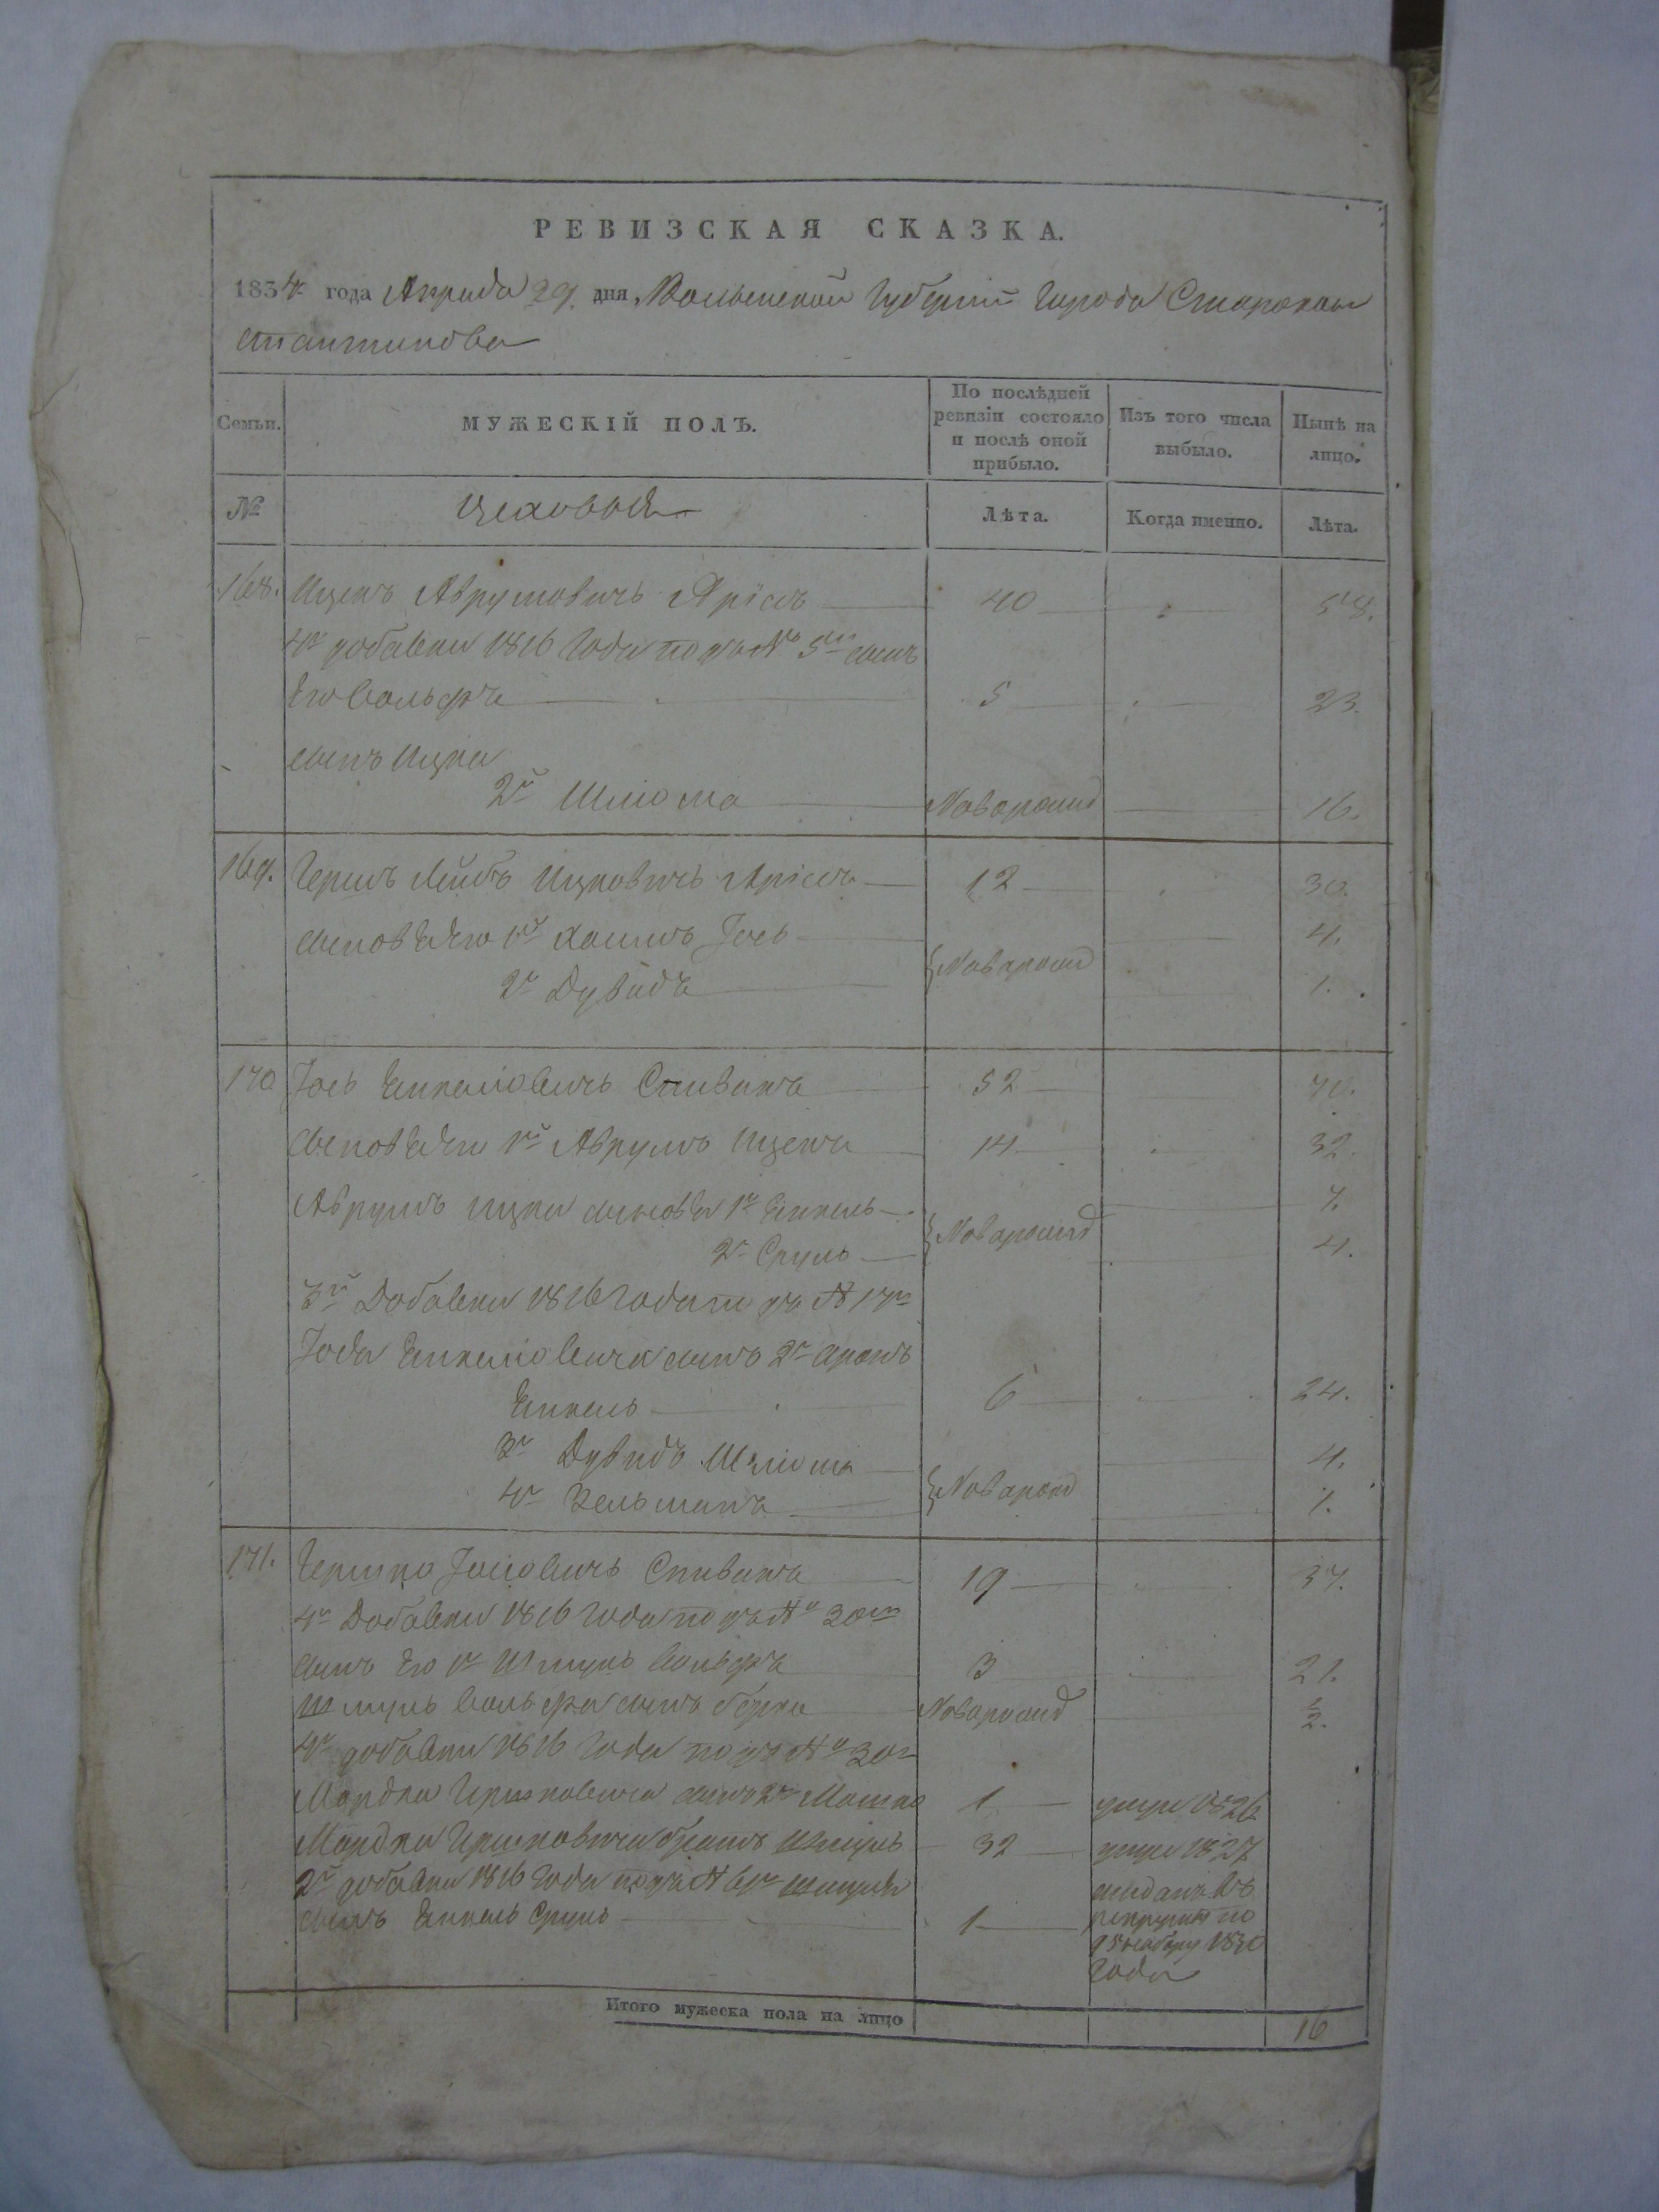 РЕВИЗСКАЯ СКАЗКА.
1834 года Апреля 29. дня Волынской Губернии Города Старокон
стантинова
Семьи.
МУЖЕСКІЙ ПОЛЪ.
По послѣдней ревизіи состояло и послѣ оной прибыло.
Изъ того числа выбыло.
Нынѣ на лицо.
№
Цеховой
Лѣта.
Когда именно.
Лѣта.
168. Ицекъ Аврумовичъ 40 58.
4й добавки 1816 Года подъ № 5м сынъ
Его Вольфъ 5 23.
сынъ Ицка
2й Шлiома Новорожд 16.
169. Гершъ Лейбъ Ицковичъ 12 30.
сыновья Его 1й Хаимъ Іось 4.
Новорожд
2й Дувидъ 1.
170 Іось Янкелiовичъ Спивакъ 52 70.
сыновья Его 1й Аврумъ Ицекъ 14 32.
Аврумъ Ицка сыновья 1й Янкель 7.
Новорожд
2й Сруль 4.
3й Добавки 1816 Года подъ №
Янкелiовича сынъ 2й Аронъ
Янкель 6 24.
3й Дувидъ Шлiома 4.
Новорожд
4й Зельманъ 1.
171. Гершко Іосiовичъ Спивакъ 19 37.
4й Добавки 1816 Года подъ № 30м
сынъ Его 1й Шмуль Вольфъ 3 21.
Шмуль Вольфа сынъ Новорожд ½.
4й добавки 1816 Года подъ № 30м
Мордка Гершковича сынъ 2й Мошко 1 умре 1826
Мордки Гершковича братъ Шмуль 32 умре 1827
2й добавки 1816 Года подъ № Шмуля
сынъ Янкель Сруль 1 отданъ въ
рекруты по
95 набору 1830
Года
Итого мужеска пола на лицо 16